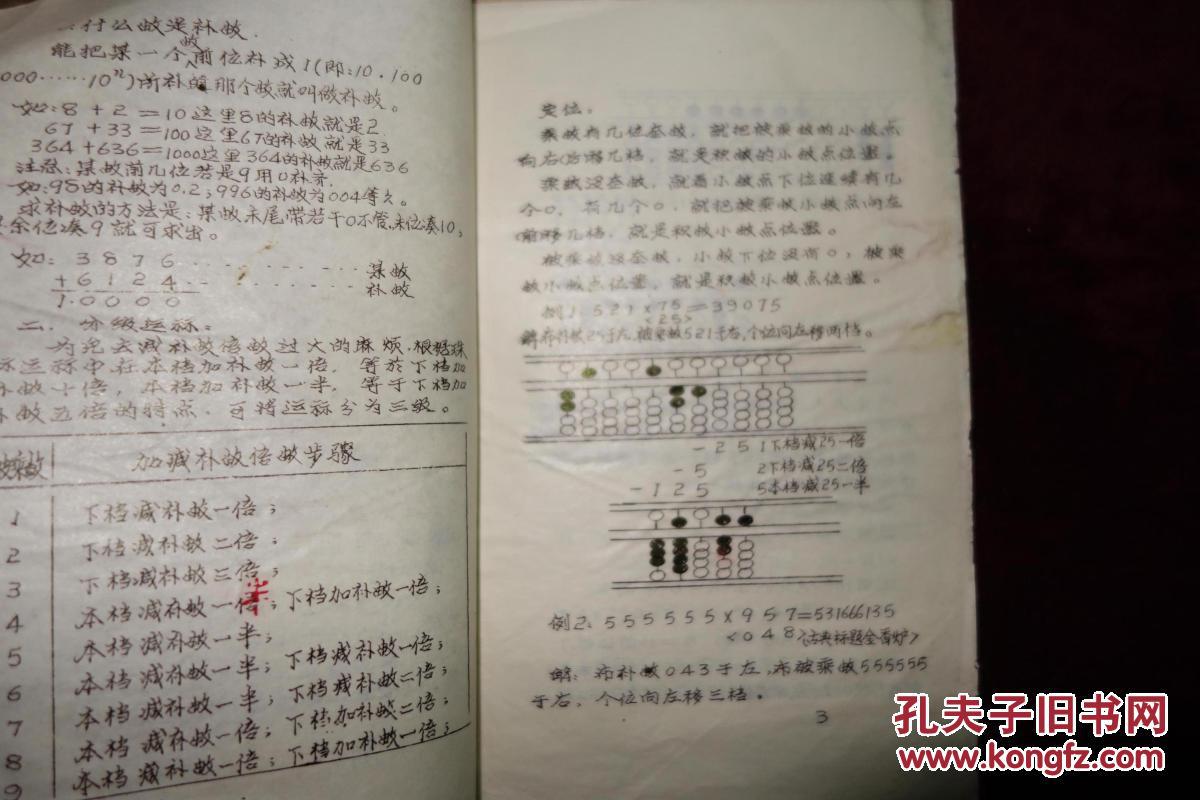 什么数是补数.
能把某一个数前位补成1(即:10.100
000……10ⁿ)所补的那个数就叫做补数。
如:8+2=10这里8的补数就是2
67+33=100这里67的补数就是33
364+636=1000这里364的补数就是636
注意:某数前几位若是9用0补齐.
如:98的补数为0.2;996的补数为004等久。
求补数的方法是:某数末尾带若干0不管,末位凑10,
余位凑9就可求出。
如:3876 某数
+6124 补数
1.0000
二.分级运标。
为免去减补数倍数过大的麻烦.根据珠
标运标中在本档加补数一倍,等於下档加
补数十倍,本档加补数一半,等于下档加
补数五倍的特点.可将运标分为三级。
被乘数 加减补数倍数步骤
1 下档减补数一倍;
2 下档减补数二倍;
3 下档减补数三倍;
4 本档减补数一半;下档加补数一倍;
5 本档减补数一半;
6 本档减补数一半;下档减补数一倍;
7 本档减补数一半;下档减补数二倍;
8 本档减补数一倍;下档加补数二倍;
9 本档减补数一倍;下档加补数一倍;
定位。
乘数有几位整数,就把被乘数的小数点
向右移几档,就是积数的小数点位置。
乘数没整数,就看小数点下位连续有几
个0,有几个0,就把被乘数小数点向左
移几档,就是积数小数点位置。
被乘数没整数,小数下位没有0,被乘
数小数点位置,就是积数小数点位置。
例1.521×75=39075
<25>
解:布补数25于左,被乘数521于右,个位向左移两档。
-251下档减25一倍
-5 2下档减25二倍
-125 5本档减25一半
例2:555555×957=531666135
<048>
解:布补数043于左,布被乘数555555
于右,个位向左移三档。
3
孔夫子旧书网
www.kongfz.com